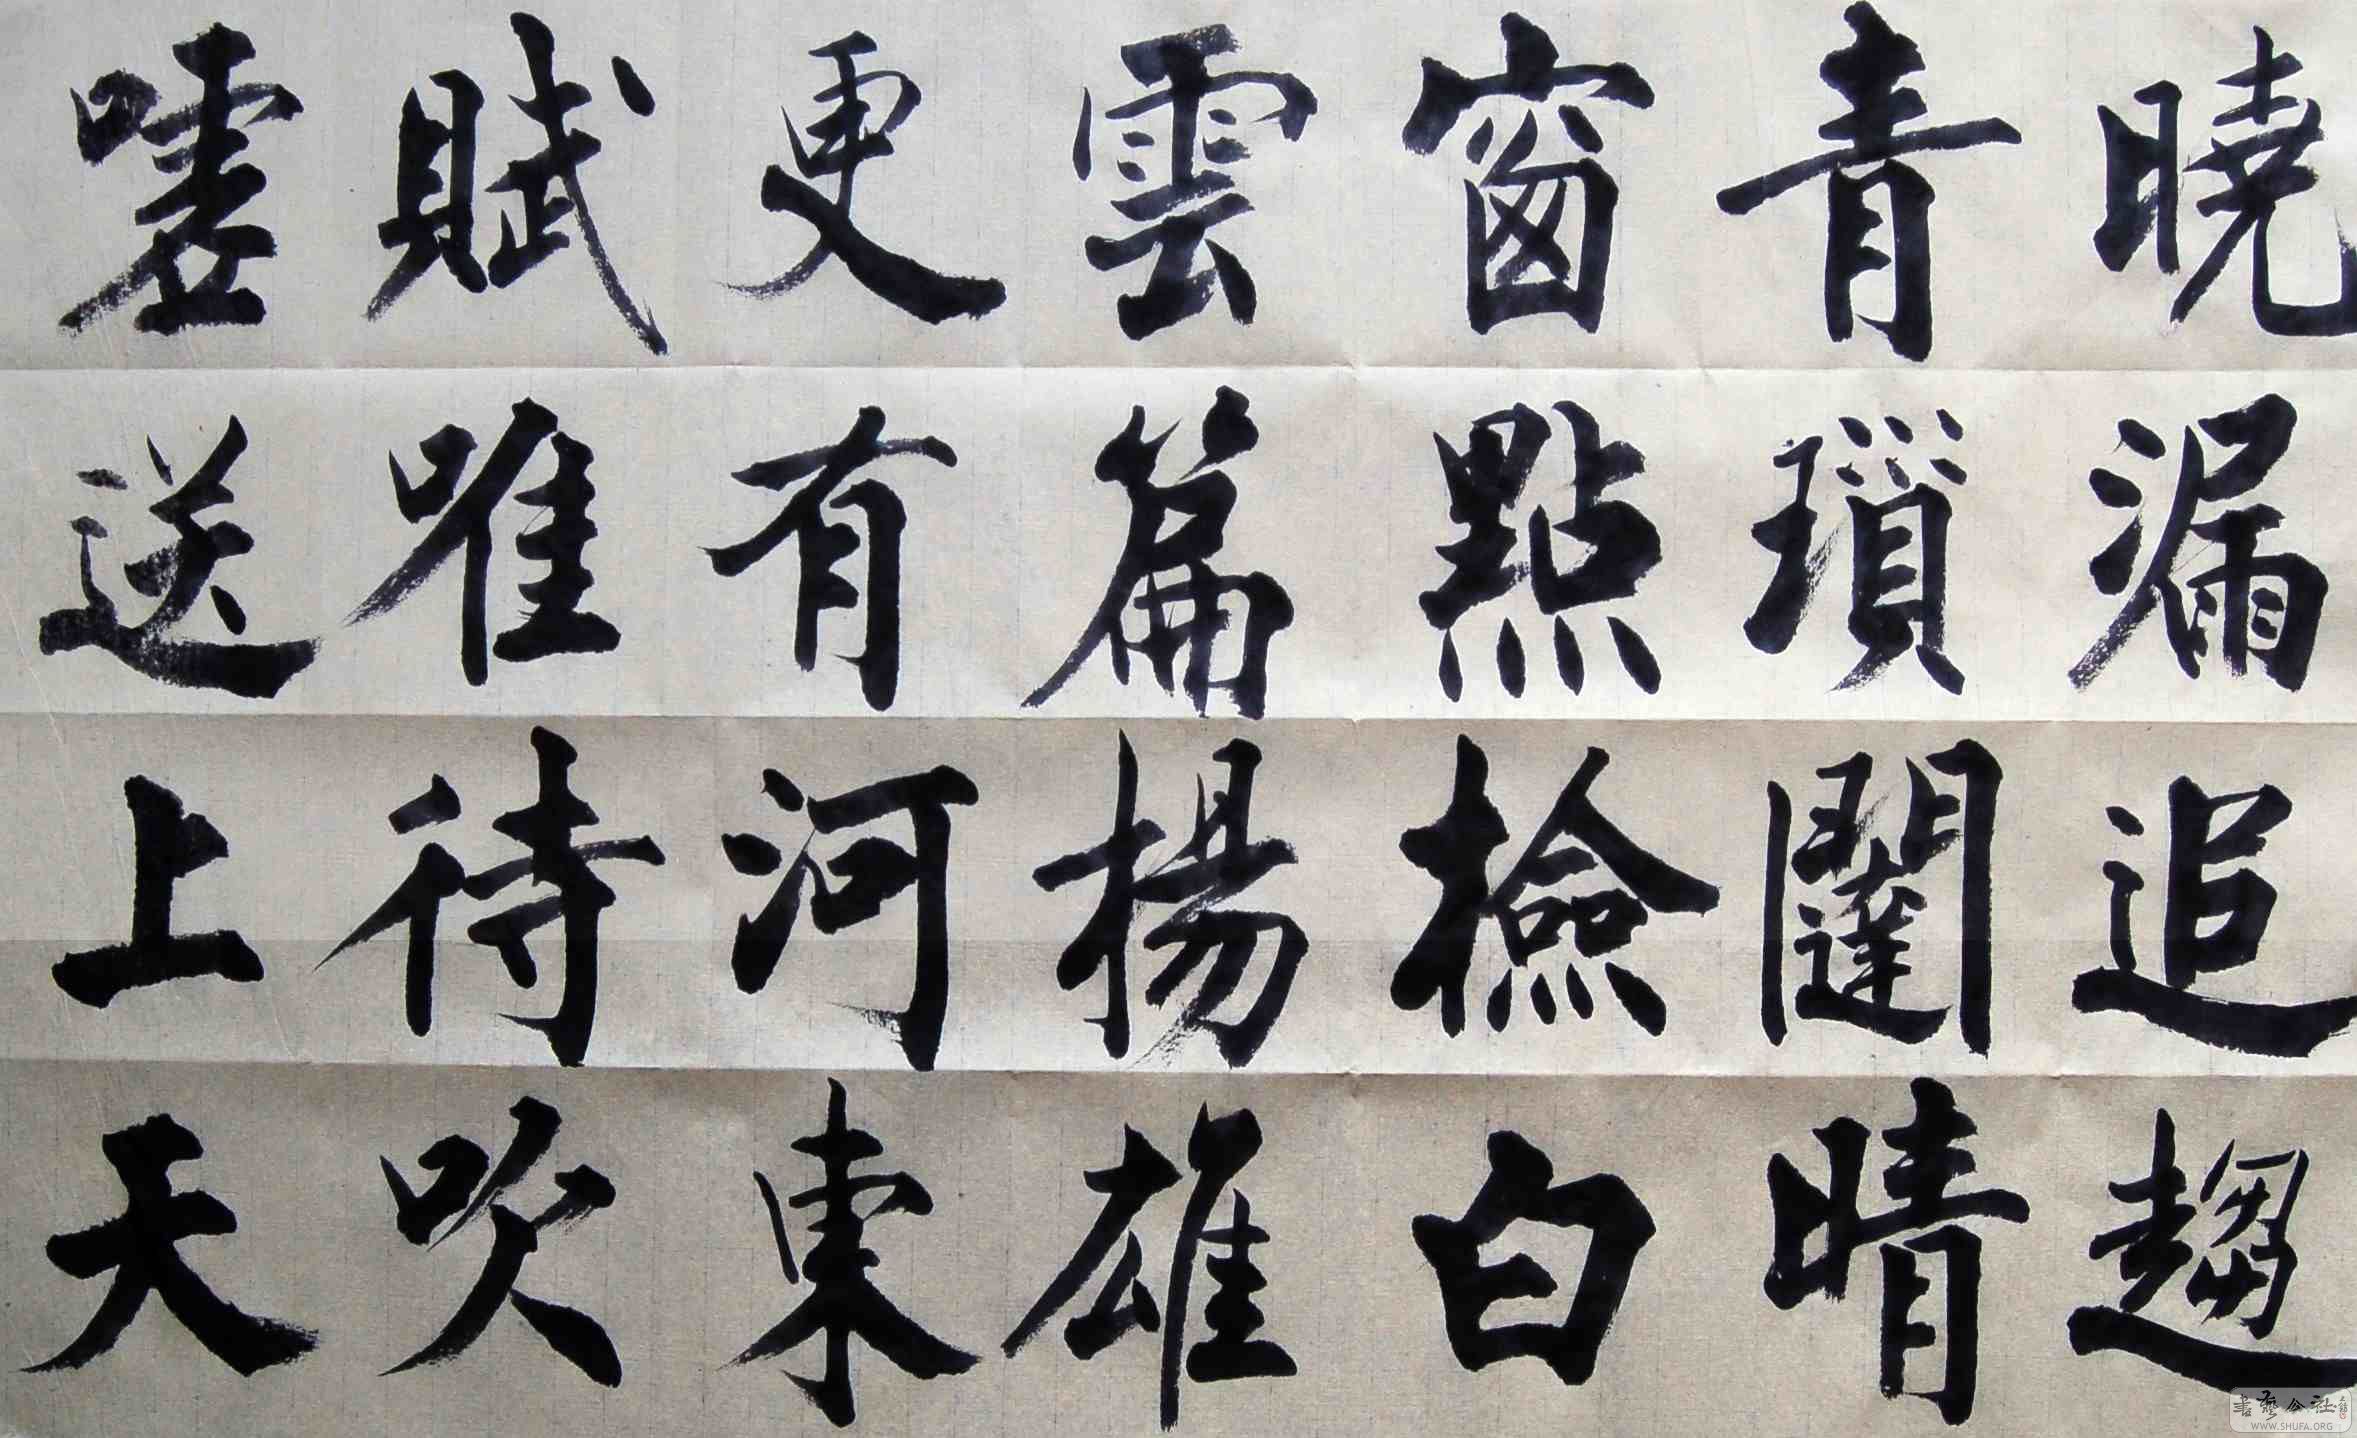 曉漏追趨
青瑣闥晴
窗點檢白
雲篇楊雄
更有河東
賦唯待吹
嘘送上天
書藝公社
WWW.SHUFA.ORG